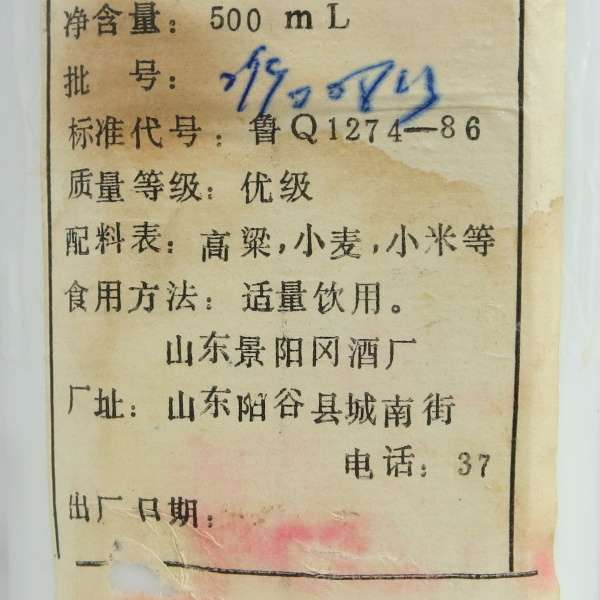 净含量：500 mL
批 号：
标准代号：鲁Q1274—86
质量等级：优级
配料表：高粱，小麦，小米等
食用方法：适量饮用。
山东景阳冈酒厂
厂址：山东阳谷县城南街
电话：37
出厂日期：